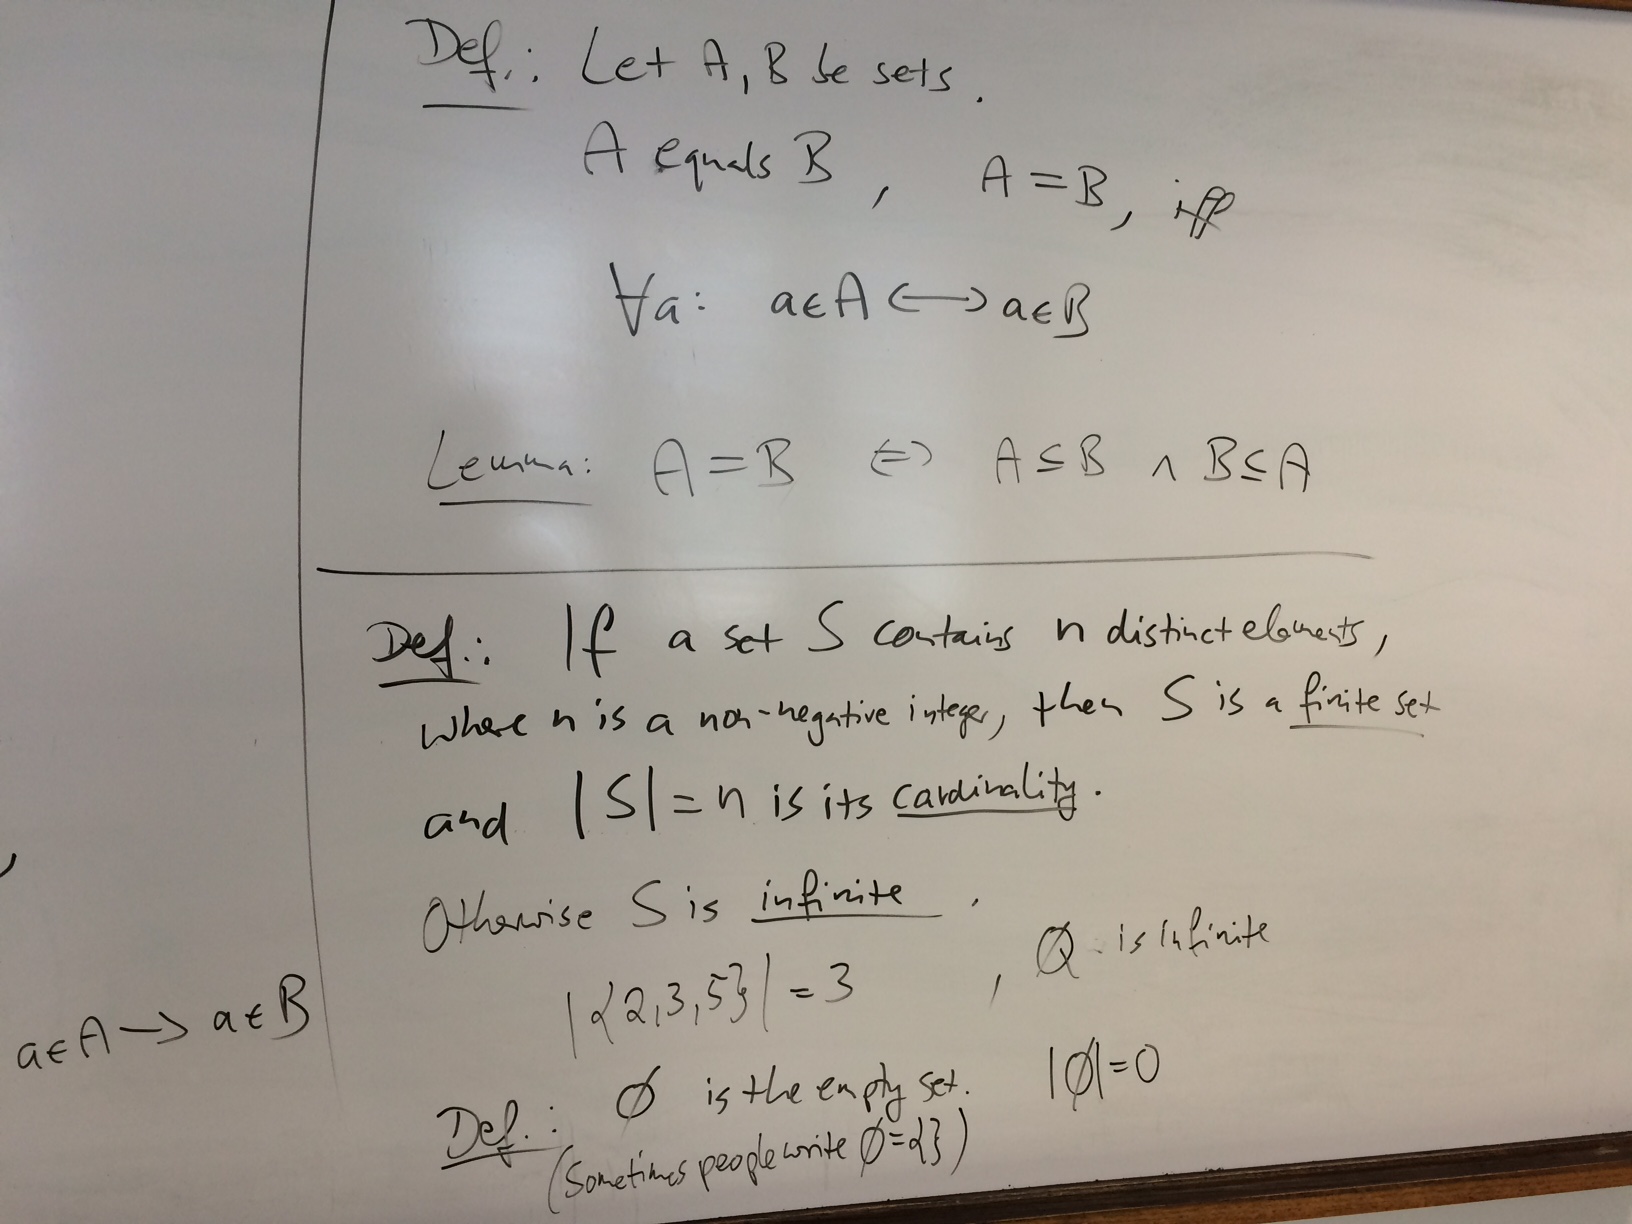 Def.: Let A, B be sets.
A equals B, A = B, iff
∀a: a∈A ⟷ a∈B
Lemma: A = B ⇔ A ⊆ B ∧ B ⊆ A
Def.: If a set S contains n distinct elements,
where n is a non-negative integer, then S is a finite set
and |S| = n is its cardinality.
Otherwise S is infinite.
|{2,3,5}| = 3, ℚ is infinite
a∈A → a∈B
Def.: ∅ is the empty set. |∅| = 0
(Sometimes people write ∅ = {})